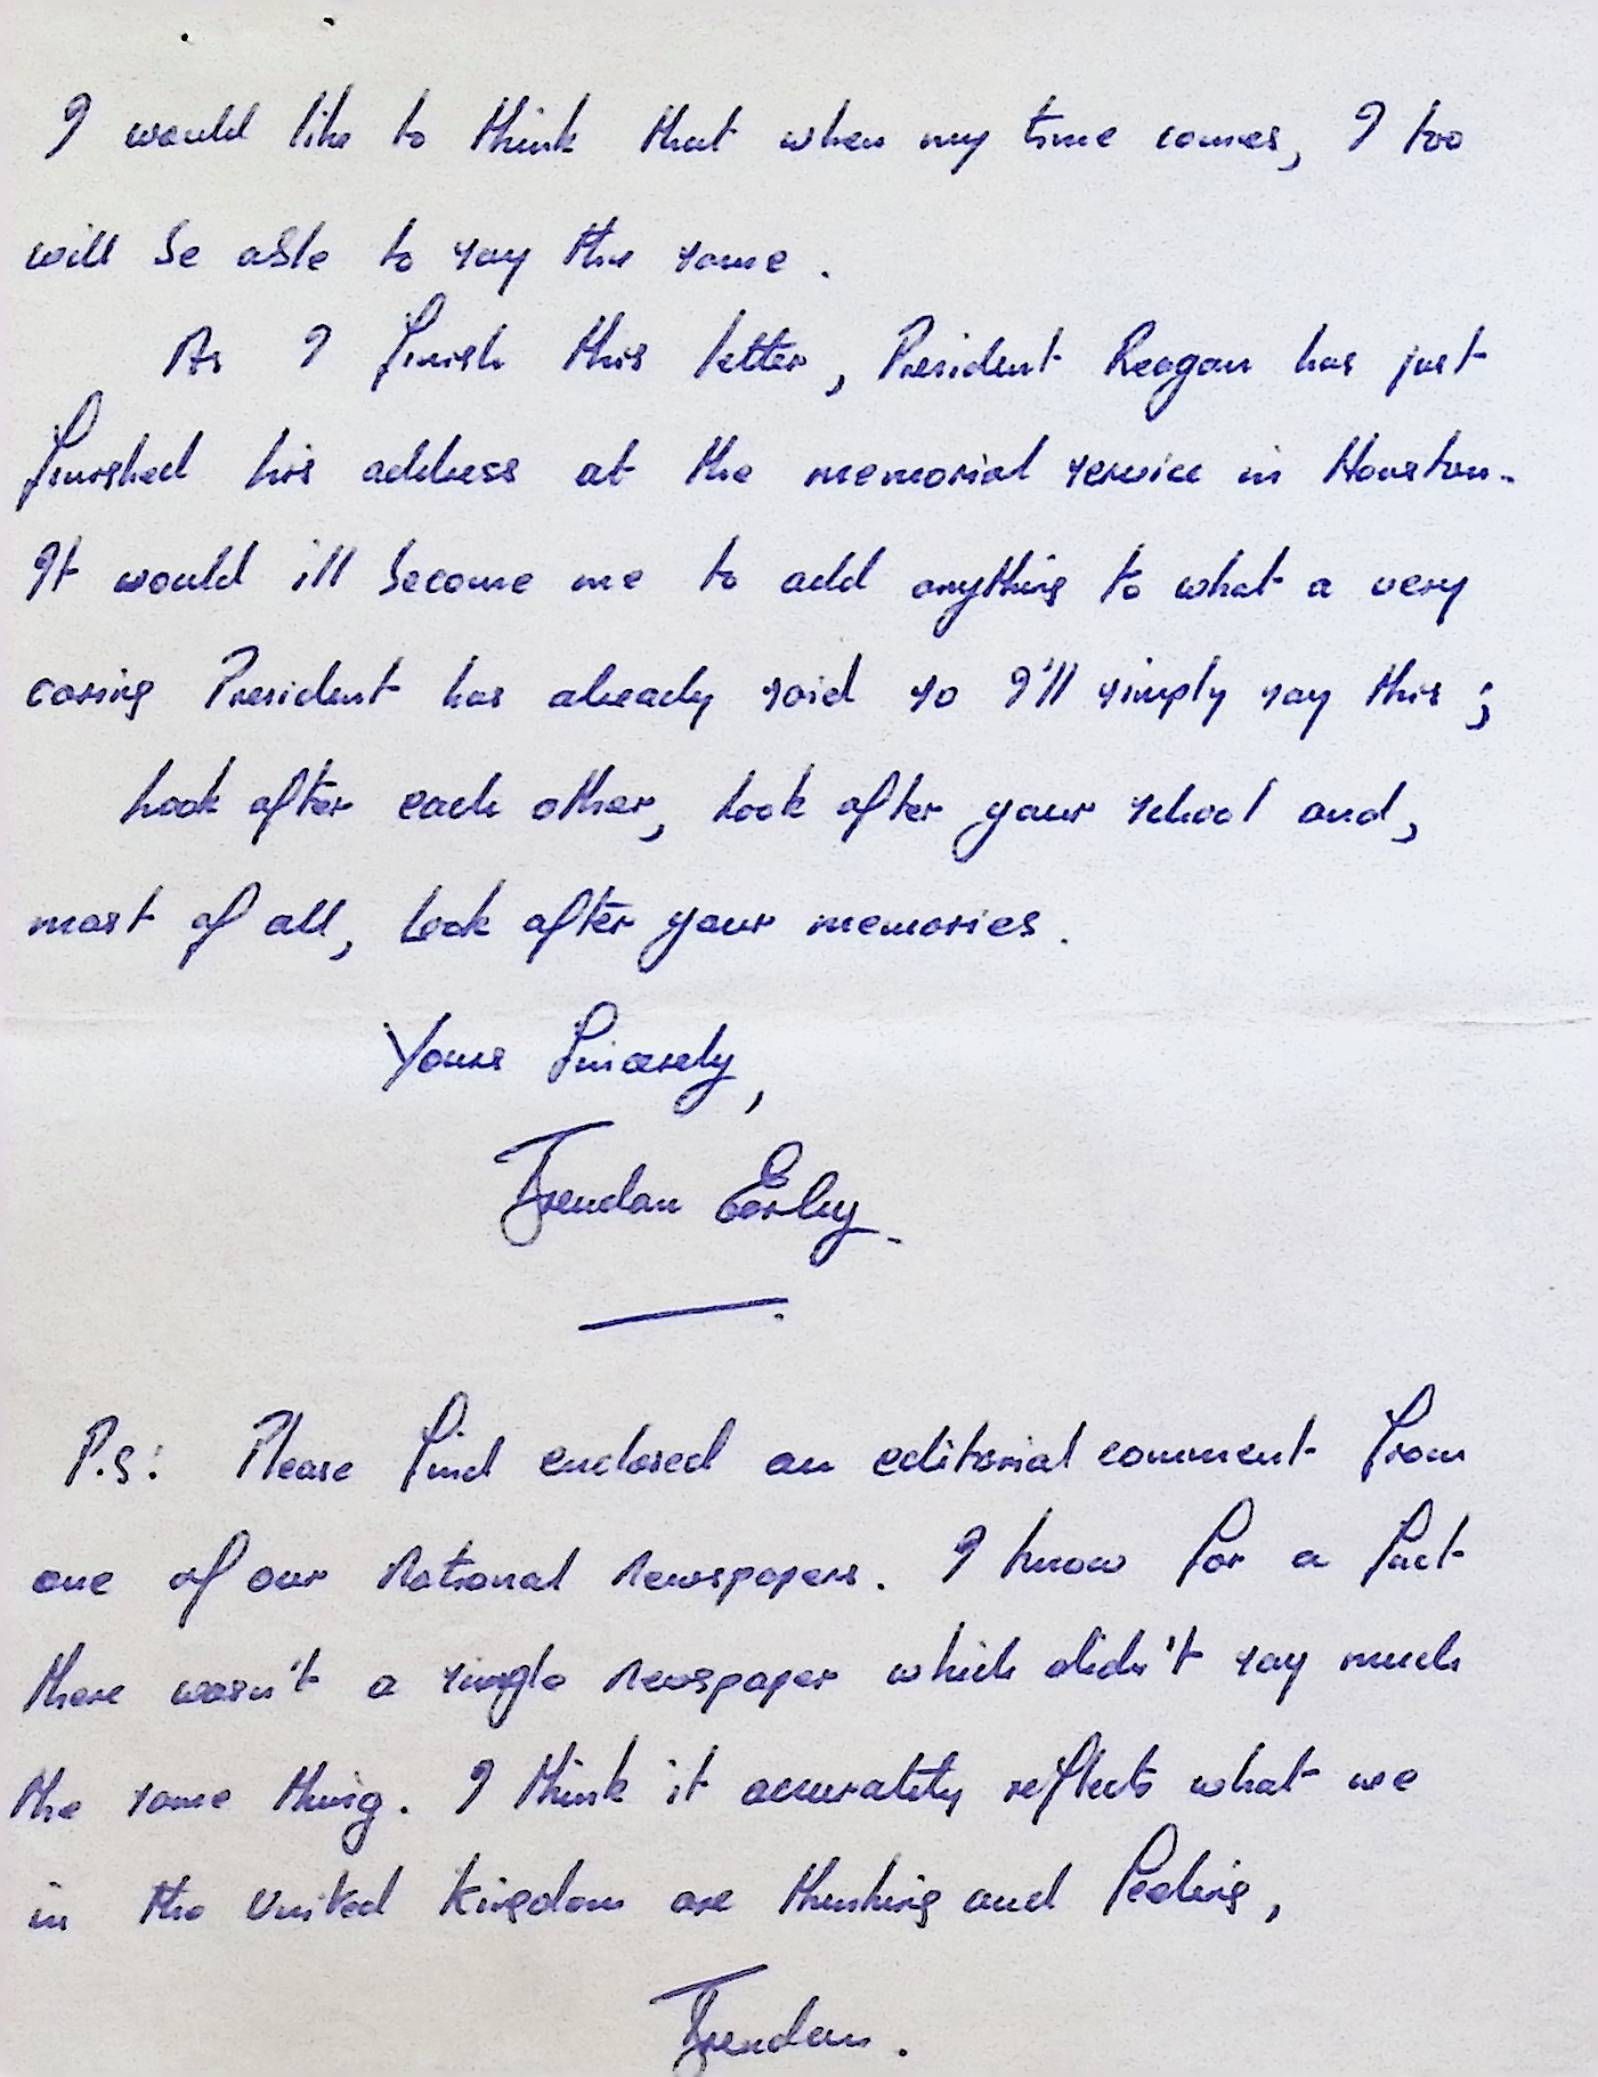 I would like to think that when my time comes, I too
will be able to say the same.
As I finish this letter, President Reagan has just
finished his address at the memorial service in Houston.
It would ill become me to add anything to what a very
caring President has already said so I'll simply say this;
Look after each other, look after your school and,
most of all, look after your memories.
Yours Sincerely,
Brendan
P.S: Please find enclosed an editorial comment from
one of our National Newspapers. I know for a fact
there wasn't a single Newspaper which didn't say much
the same thing. I think it accurately reflects what we
in the United Kingdom are thinking and feeling,
Brendan.